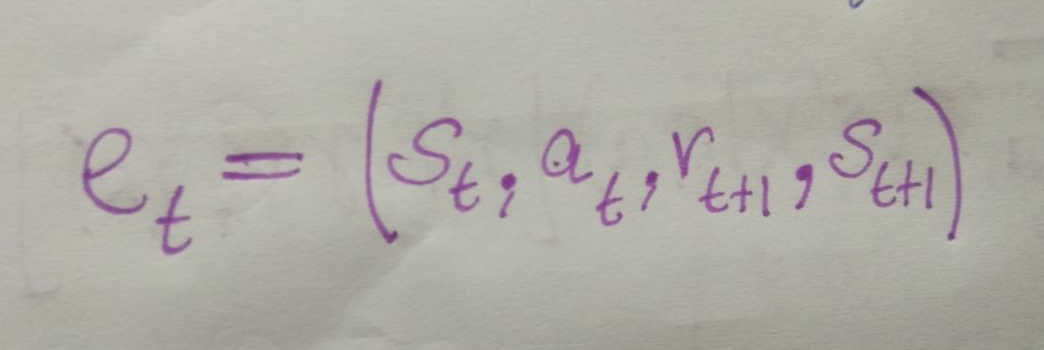 e_t = (s_t, a_t, r_{t+1}, s_{t+1})